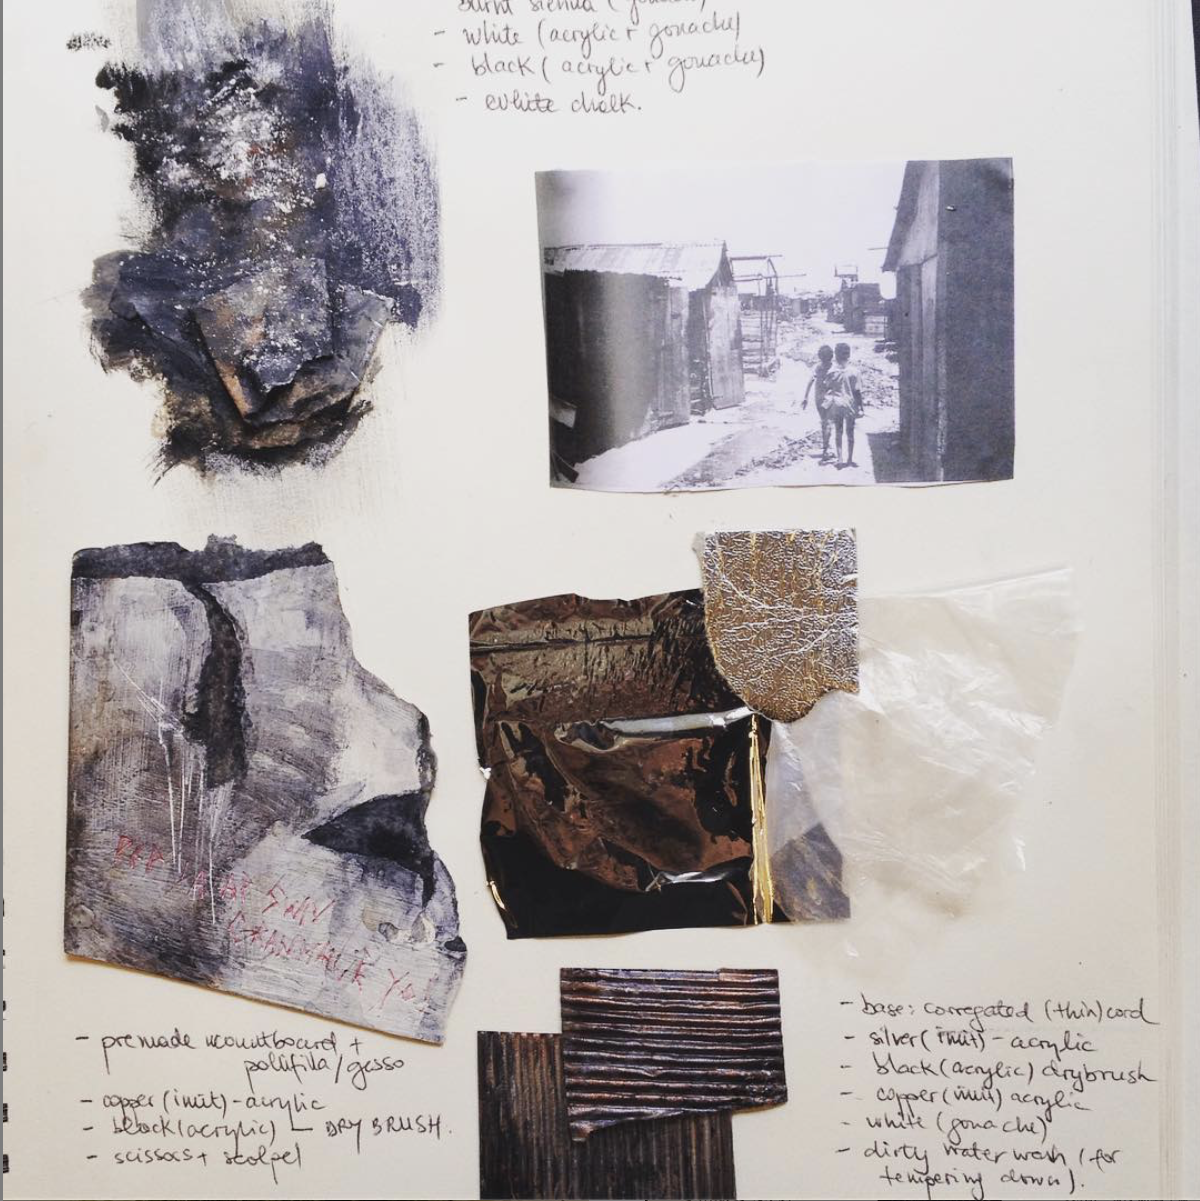 burnt sienna (gouache)
- white (acrylic + gouache)
- black (acrylic + gouache)
- white chalk.
- premade mountboard +
pollifilla/gesso
- copper (imit) - acrylic
- black (acrylic) DRY BRUSH.
- scissors + scalpel
- base: corregated (thin) card
- silver (imit) - acrylic
- black (acrylic) drybrush
- copper (imit) acrylic
- white (gouache)
- dirty water wash (for
tempering down).